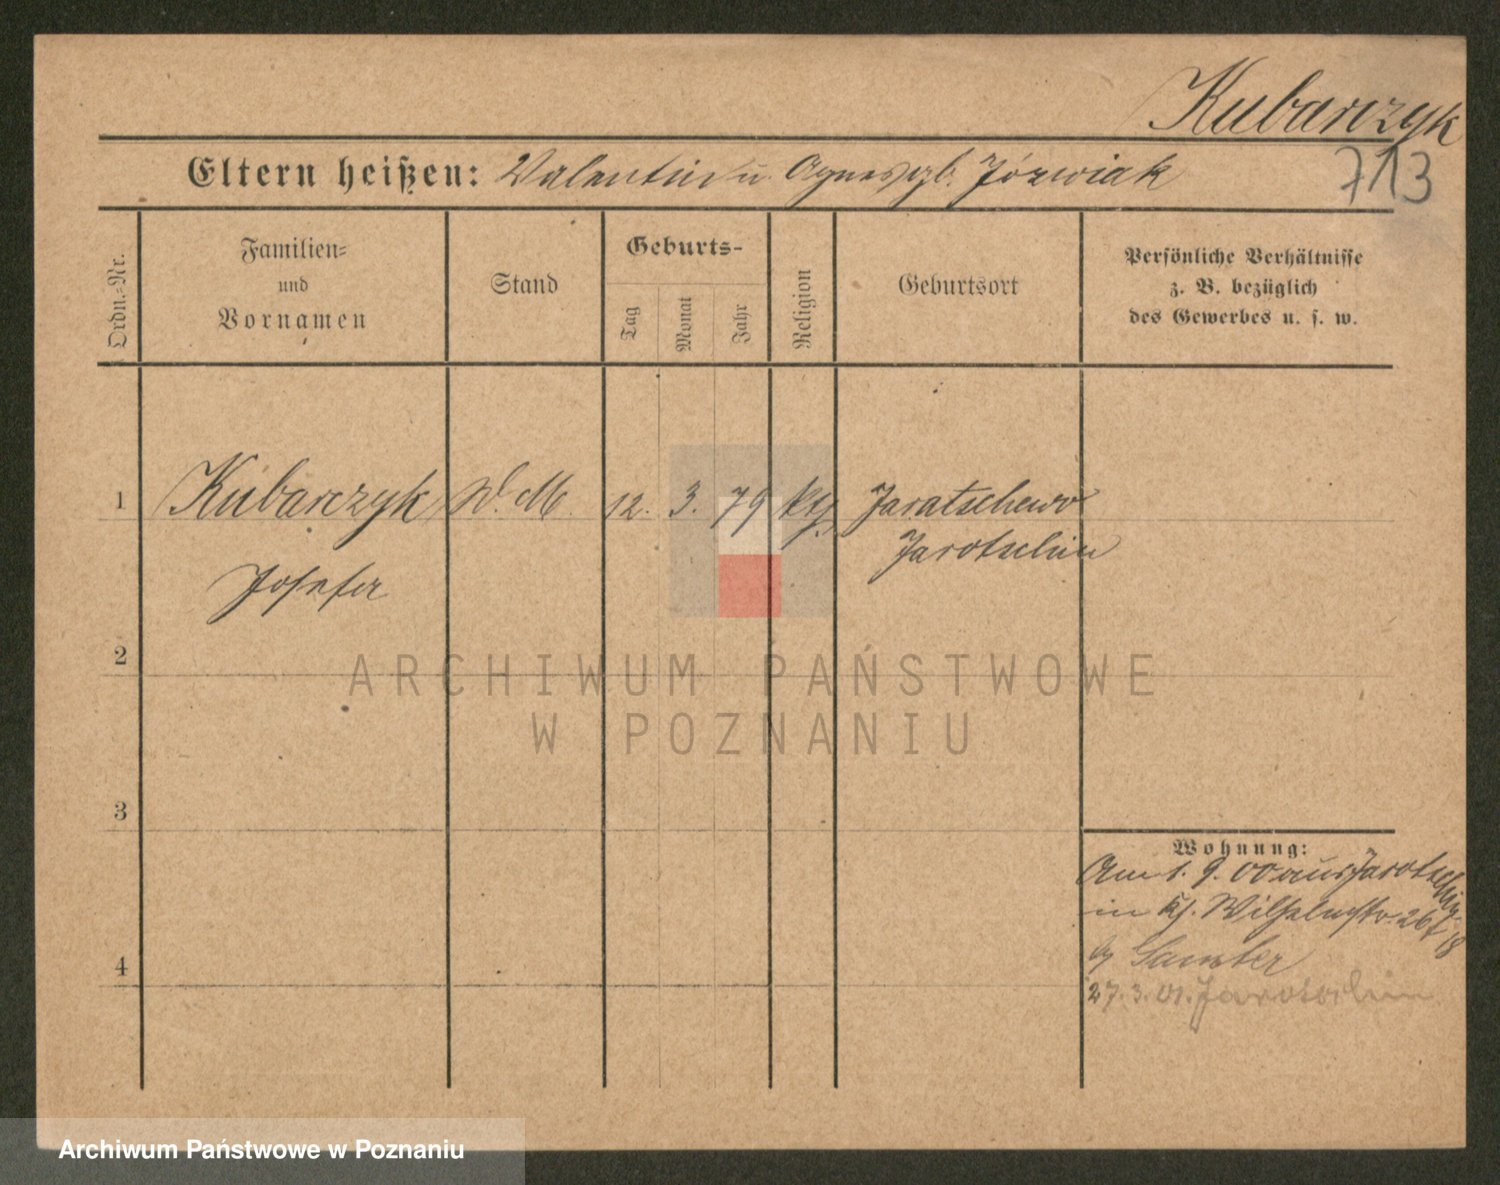 Kubarczyk
Eltern heißen: Valentin u. Agnes gb. Józwiak
713
Ordn.=Nr.
Familien=
und
Vornamen
Stand
Geburts-
Tag
Monat
Jahr
Religion
Geburtsort
Persönliche Verhältnisse
z. B. bezüglich
des Gewerbes u. s. w.
1 Kubarczyk D. M. 12. 3. 79 kth Jaratschewo
Jarotschin
Josefa
2
3
4
Wohnung:
Am 1. 9. 00 aus Jarotschin
in Wilhelmstr. 26
18
27. 3. 01. Jarotschin
ARCHIWUM PAŃSTWOWE
W POZNANIU
Archiwum Państwowe w Poznaniu